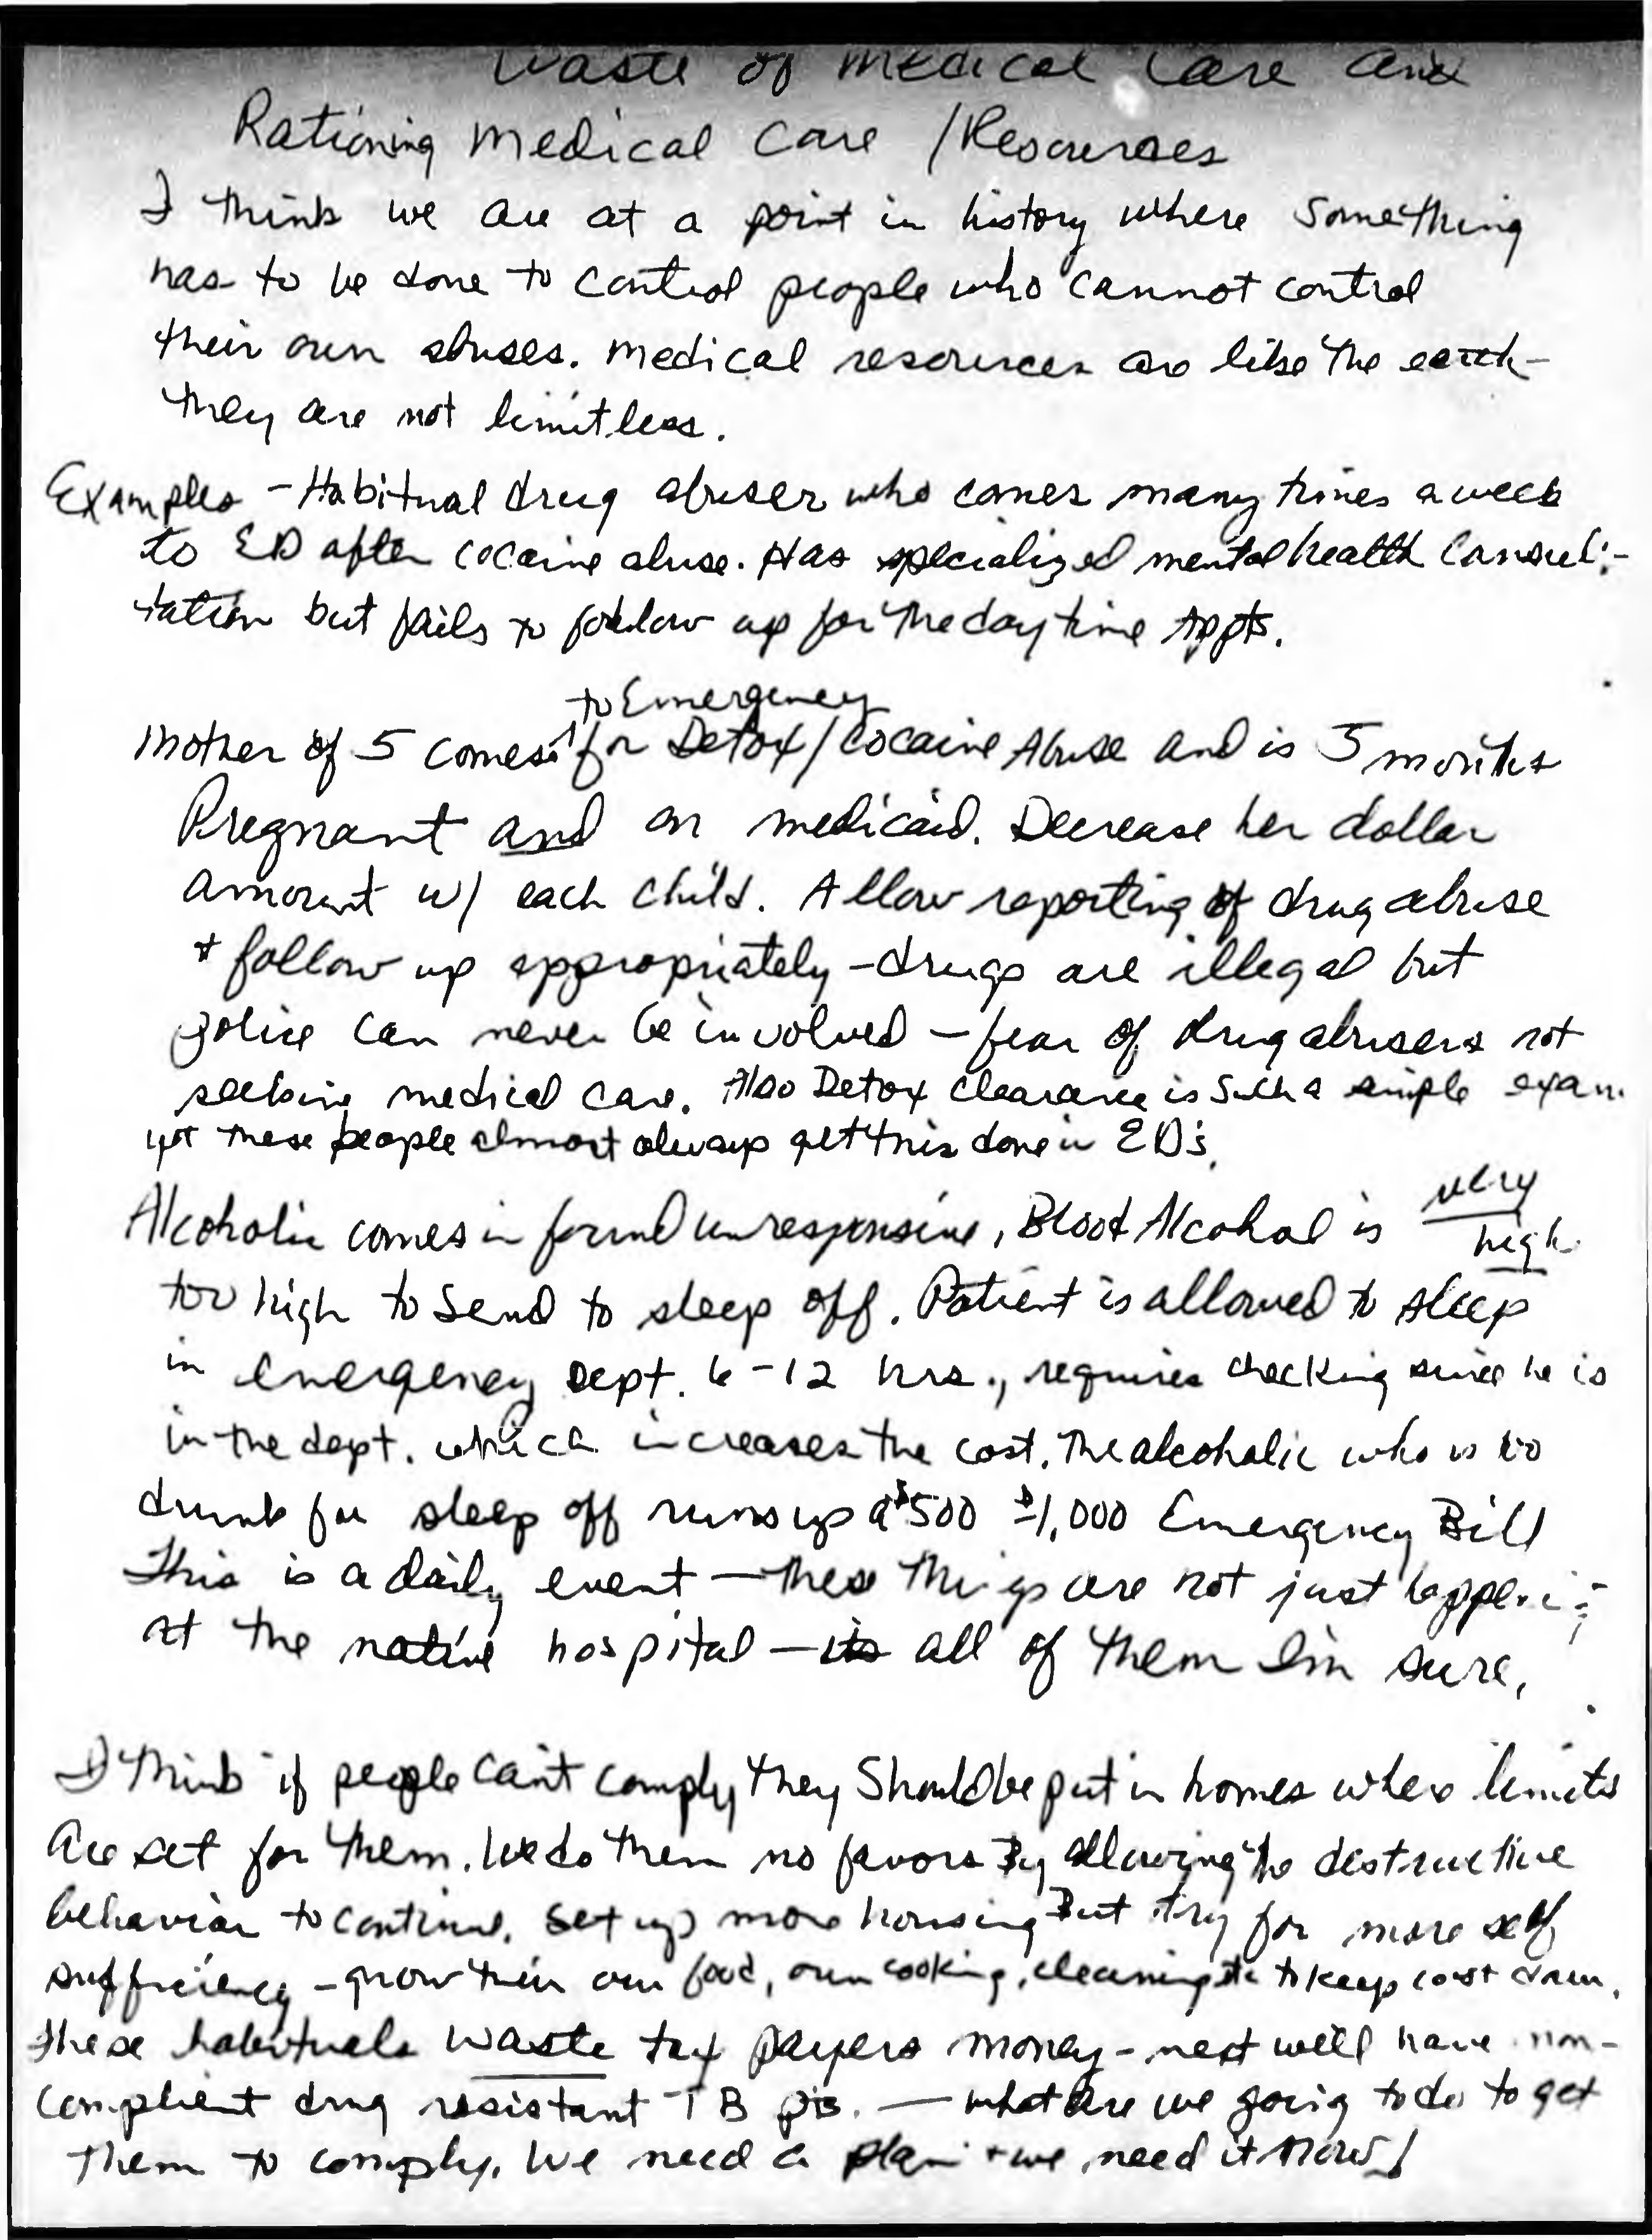 Waste of Medical Care and
Rationing Medical Care / Resources
I think we are at a point in history where something
has to be done to control people who cannot control
their own abuses. Medical resources are like the earth -
they are not limitless.
Examples - Habitual drug abuser who comes many times a week
to ED after cocaine abuse. Has specialized mental health consul-
tation but fails to follow up for the daytime Appts.
to Emergency
Mother of 5 comes ^ for Detox / Cocaine Abuse and is 5 months
Pregnant and on medicaid. Decrease her dollar
amount w/ each child. Allow reporting of drug abuse
+ follow up appropriately - drugs are illegal but
police can never be involved - fear of drug abusers not
seeking medical care. Also Detox clearance is such a simple exam
yet these people almost always get this done in ED's.
Alcoholic comes in found unresponsive, Blood Alcohol is very
high
too high to send to sleep off. Patient is allowed to sleep
in emergency Dept. 6-12 hrs., requires checking since he is
in the dept. which increases the cost. The alcoholic who is too
drunk for sleep off runs up a $500 - $1,000 Emergency Bill
This is a daily event - these things are not just happeni
at the native hospital - its all of them Im sure,
I think if people can't comply they should be put in homes where limits
are set for them. We do them no favors By allowing the destructive
behavior to continue. Set up more housing But try for more self
sufficiency - grow their own food, own cooking, cleaning etc to keep cost down.
These habituals waste tax payers money - next we'll have non-
complient drug resistant TB pts. - what are we going to do to get
them to comply. We need a plan + we need it Now!